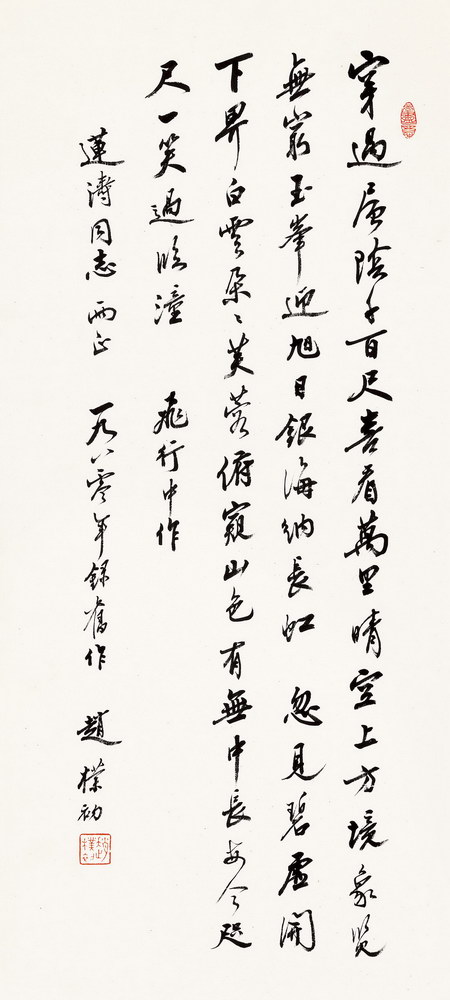 穿過層陰千百尺喜看萬里晴空上方境象覽
無窮玉峯迎旭日銀海納長虹 忽見碧虛開
下界白雲朵〻芙蓉俯窺山色有無中長安今咫
尺一笑過臨潼 飛行中作
蓮濤同志兩正 一九八零年錄舊作 趙樸初